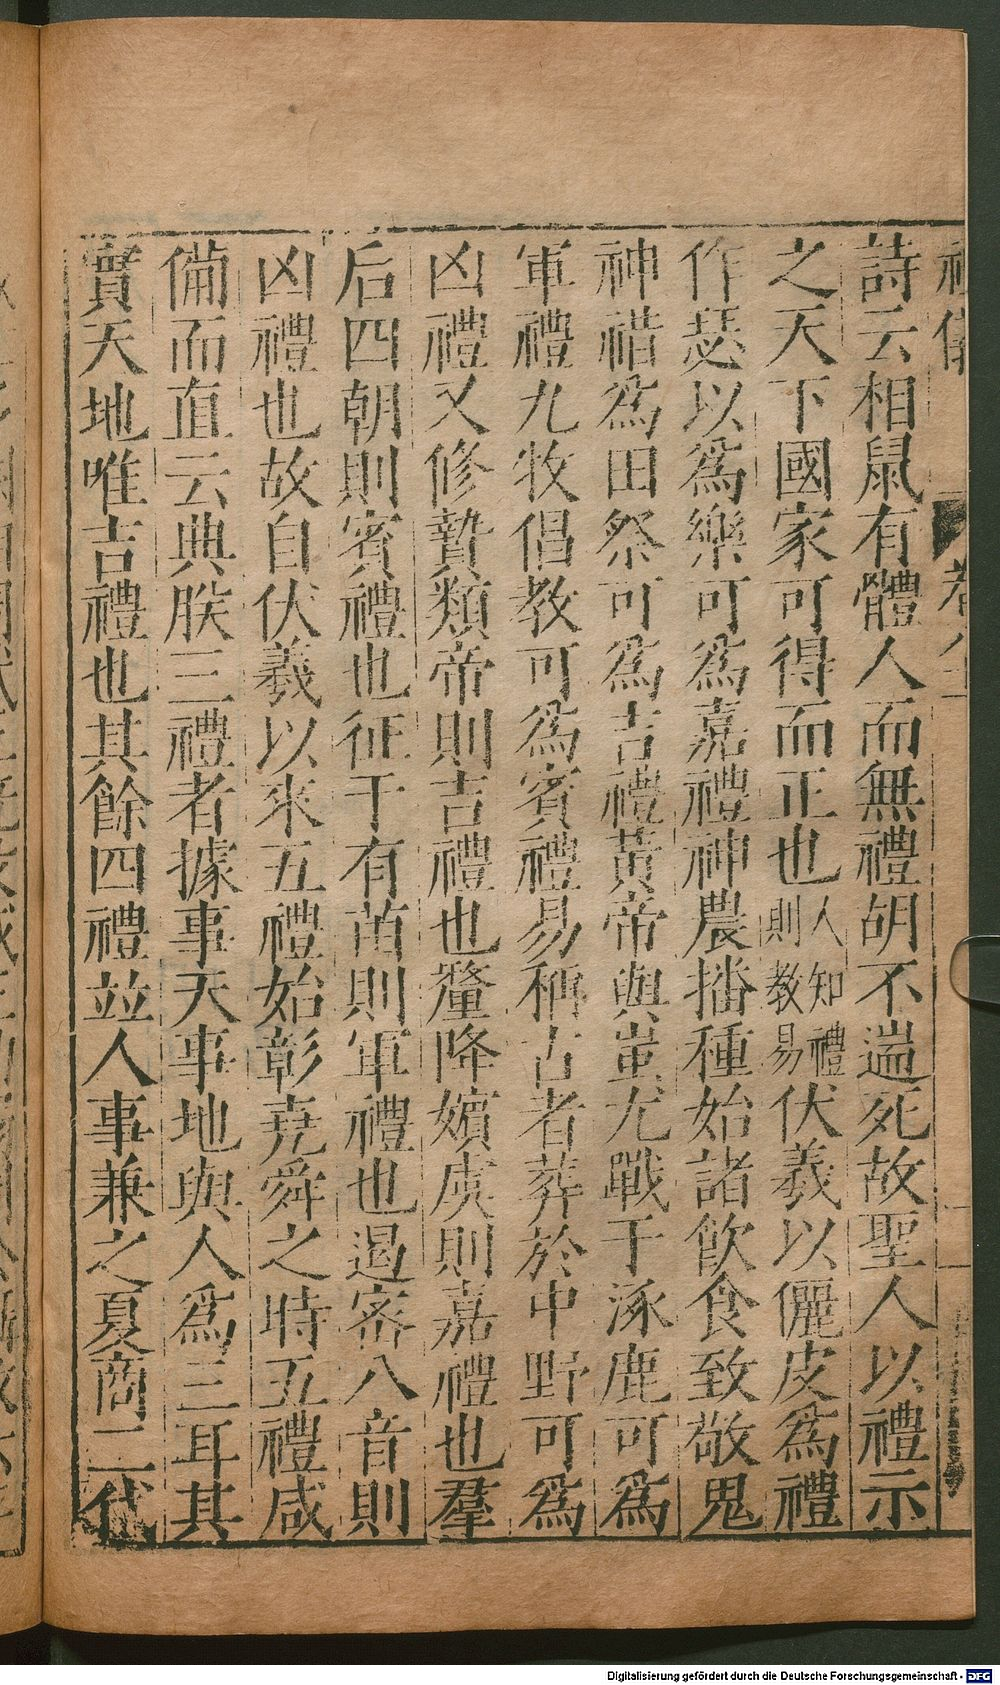 詩云相鼠有體人而無禮胡不遄死故聖人以禮示
之天下國家可得而正也人知禮則教易伏羲以儷皮爲禮
作瑟以爲樂可爲嘉禮神農播種始諸飮食致敬鬼
神䄍爲田祭可爲吉禮黃帝與蚩尤戰于涿鹿可爲
軍禮九牧倡教可爲賓禮易稱古者葬於中野可爲
凶禮又修贄類帝則吉禮也釐降嬪虞則嘉禮也羣
后四朝則賓禮也征于有苗則軍禮也遏密八音則
凶禮也故自伏羲以來五禮始彰堯舜之時五禮咸
備而直云典朕三禮者據事天事地與人爲三耳其
實天地唯吉禮也其餘四禮並人事兼之夏商二代
Digitalisierung gefördert durch die Deutsche Forschungsgemeinschaft - DFG